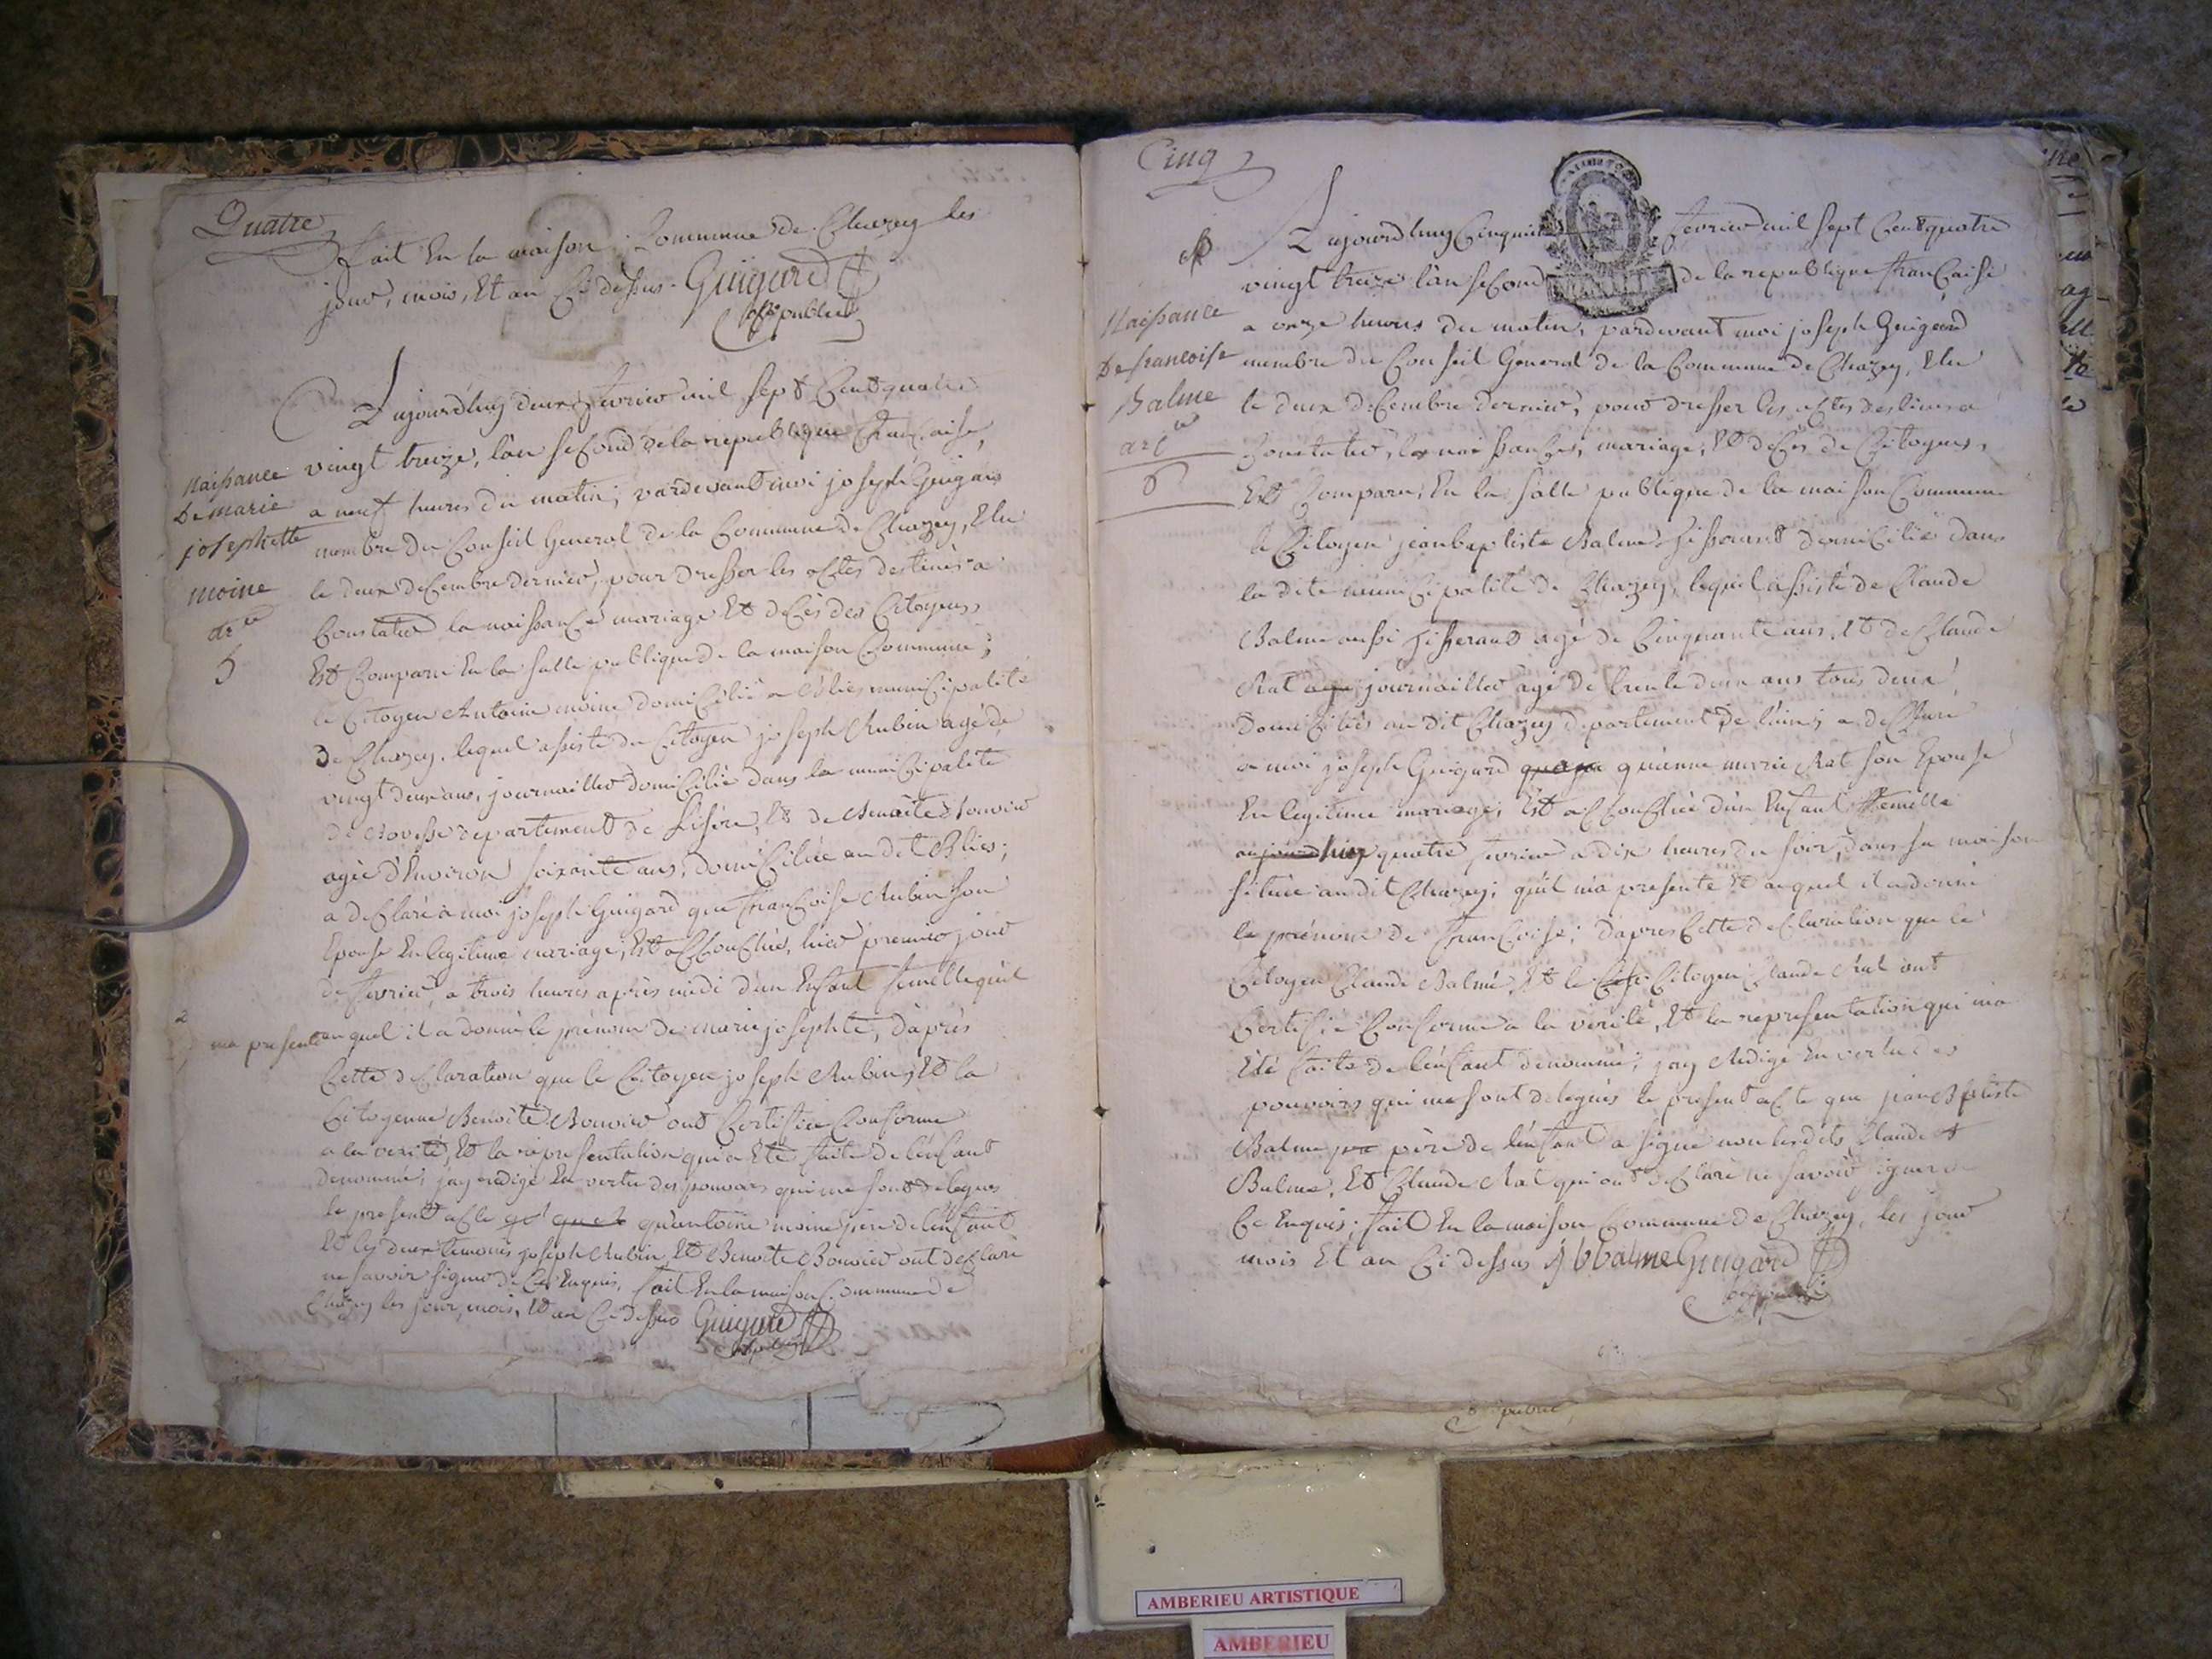 Quatre
fait En la maison Commune de Chazey les
jour, mois, Et an Ci dessus. Guigard
off. public
Aujourd'huy deux fevrier mil sept Cent quatre
vingt treize, l'an second de la republique française,
a neuf heures du matin; pardevant moi joseph Guigard
membre du Conseil General de la Commune de Chazey, Elu
le deux decembre dernier, pour dresser les actes destinés a
Constater la naissance mariage Et décès des Citoyens
Est Comparu En la salle publique de la maison Commune;
le Citoyen Antoine moine domicilié a Blies municipalité
de Chazey, lequel assisté du Citoyen joseph Rubin agé de
vingt deux ans, journaillier domicilié dans la municipalité
de departement de L'isère, Et de Benoite Bouvier
agée d'Environ soixante ans, domiciliée au dit Blies;
a déclaré à moi joseph Guigard que françoise Rubin son
Epouse En legitime mariage, Est accouchée, hier premier jour
de fevrier, a trois heures après midi d'un Enfant femelle qu'il
ma presenté auquel il a donné le prénom de marie josephte, d'après
Cette declaration que le Citoyen joseph Rubin, Et la
Citoyenne Benoite Bouvier ont Certifiée Conforme
a la verité, Et la representation qui a Eté faite de l'enfant
denommé, j'ay redigé En vertu des pouvoirs qui me sont delegués
le present acte qu'antoine moine père de l'enfant
Et les deux temoins joseph Rubin, Et Benoite Bouvier ont declaré
ne savoir signer de Ce Enquis, fait En la maison Commune de
Chazey les jour, mois, Et an Ci dessus Guigard
off. public
naissance
De marie
josephette
moine
5
Cinq
Aujourd'huy Cinquième fevrier mil sept Cent quatre
vingt treize l'an second de la republique française
a onze heures du matin, pardevant moi joseph Guigard
membre du Conseil General de la Commune de Chazey, Elu
le deux decembre dernier, pour dresser les actes destinés a
Constater, les naissances, mariage, Et décès de Citoyens,
Est Comparu, En la salle publique de la maison Commune
le Citoyen jean baptiste Balme tisserand domicilié dans
la dite municipalité de Chazey, lequel assisté de Claude
Balme aussi tisserand agé de Cinquante ans, Et de Claude
Rat journaillier agé de trente deux ans tous deux
domiciliés au dit Chazey departement de l'ain; a declaré
a moi joseph Guigard qu'anne marie Rat son Epouse
En legitime mariage, Est accouchée d'un Enfant femelle
quatre fevrier a dix heures du soir, dans sa maison
située au dit Chazey; qu'il m'a presenté Et auquel il a donné
le prénom de françoise; d'apres Cette declaration que le
Citoyen Claude Balme, Et le Citoyen Claude Rat ont
Certifié Conforme a la verité, Et la representation qui m'a
Eté faite de l'enfant denommé; j'ay Redigé En vertu des
pouvoirs qui me sont delegués le present acte que jean Bptiste
Balme père de l'enfant a signé non lesdits Claude
Balme, Et Claude Rat qui ont declaré ne savoir signer de
Ce Enquis; fait En la maison Commune de Chazey, les jour
mois Et an Ci dessus J b Balme Guigard
Naissance
De francoise
Balme
6
public
AMBERIEU ARTISTIQUE
AMBERIEU